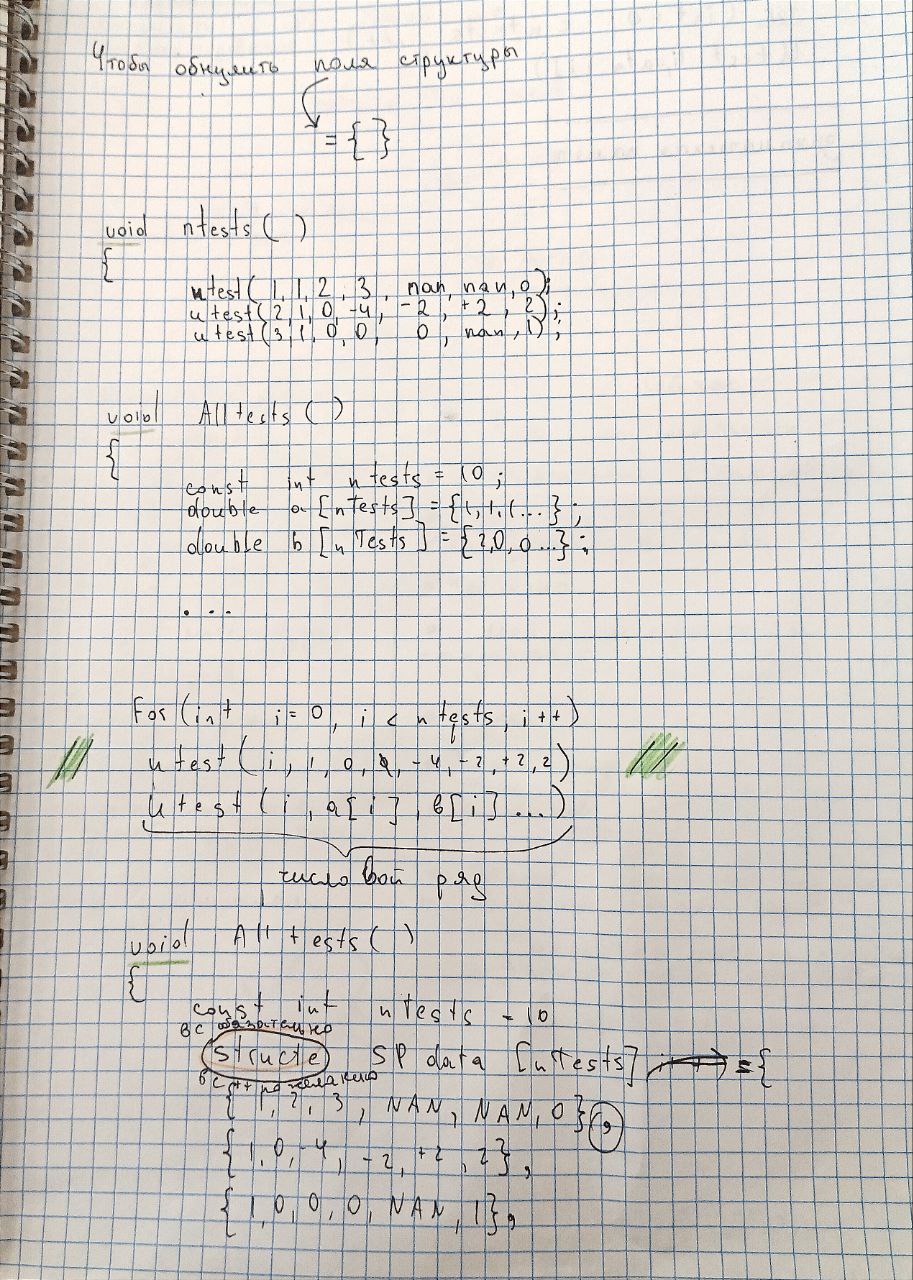 Чтобы обнулить поля структуры
= { }
void ntests ( )
{
utest( 1, 1, 2, 3, nan, nan, 0);
utest(2, 1, 0, -4, -2, +2, 2);
utest(3, 1, 0, 0, 0, nan, 1);
void Alltests ( )
{
const int ntests = 10 ;
double a [nTests] = {1, 1, 1...} ;
double b [nTests] = {2, 0, 0...} ;
. . .
For (int i = 0, i < ntests, i ++)
utest (i, 1, 0, -4, -2, +2, 2)
utest (i, a[i], b[i] ...)
числовой ряд
void All tests ( )
{
const int ntests = 10
в с обязательно
structe SP data [nTests] = {
в с ++ по желанию
{ 1, 2, 3, NAN, NAN, 0 } ,
{ 1, 0, -4, -2, +2, 2 } ,
{ 1, 0, 0, 0, NAN, 1 } ,